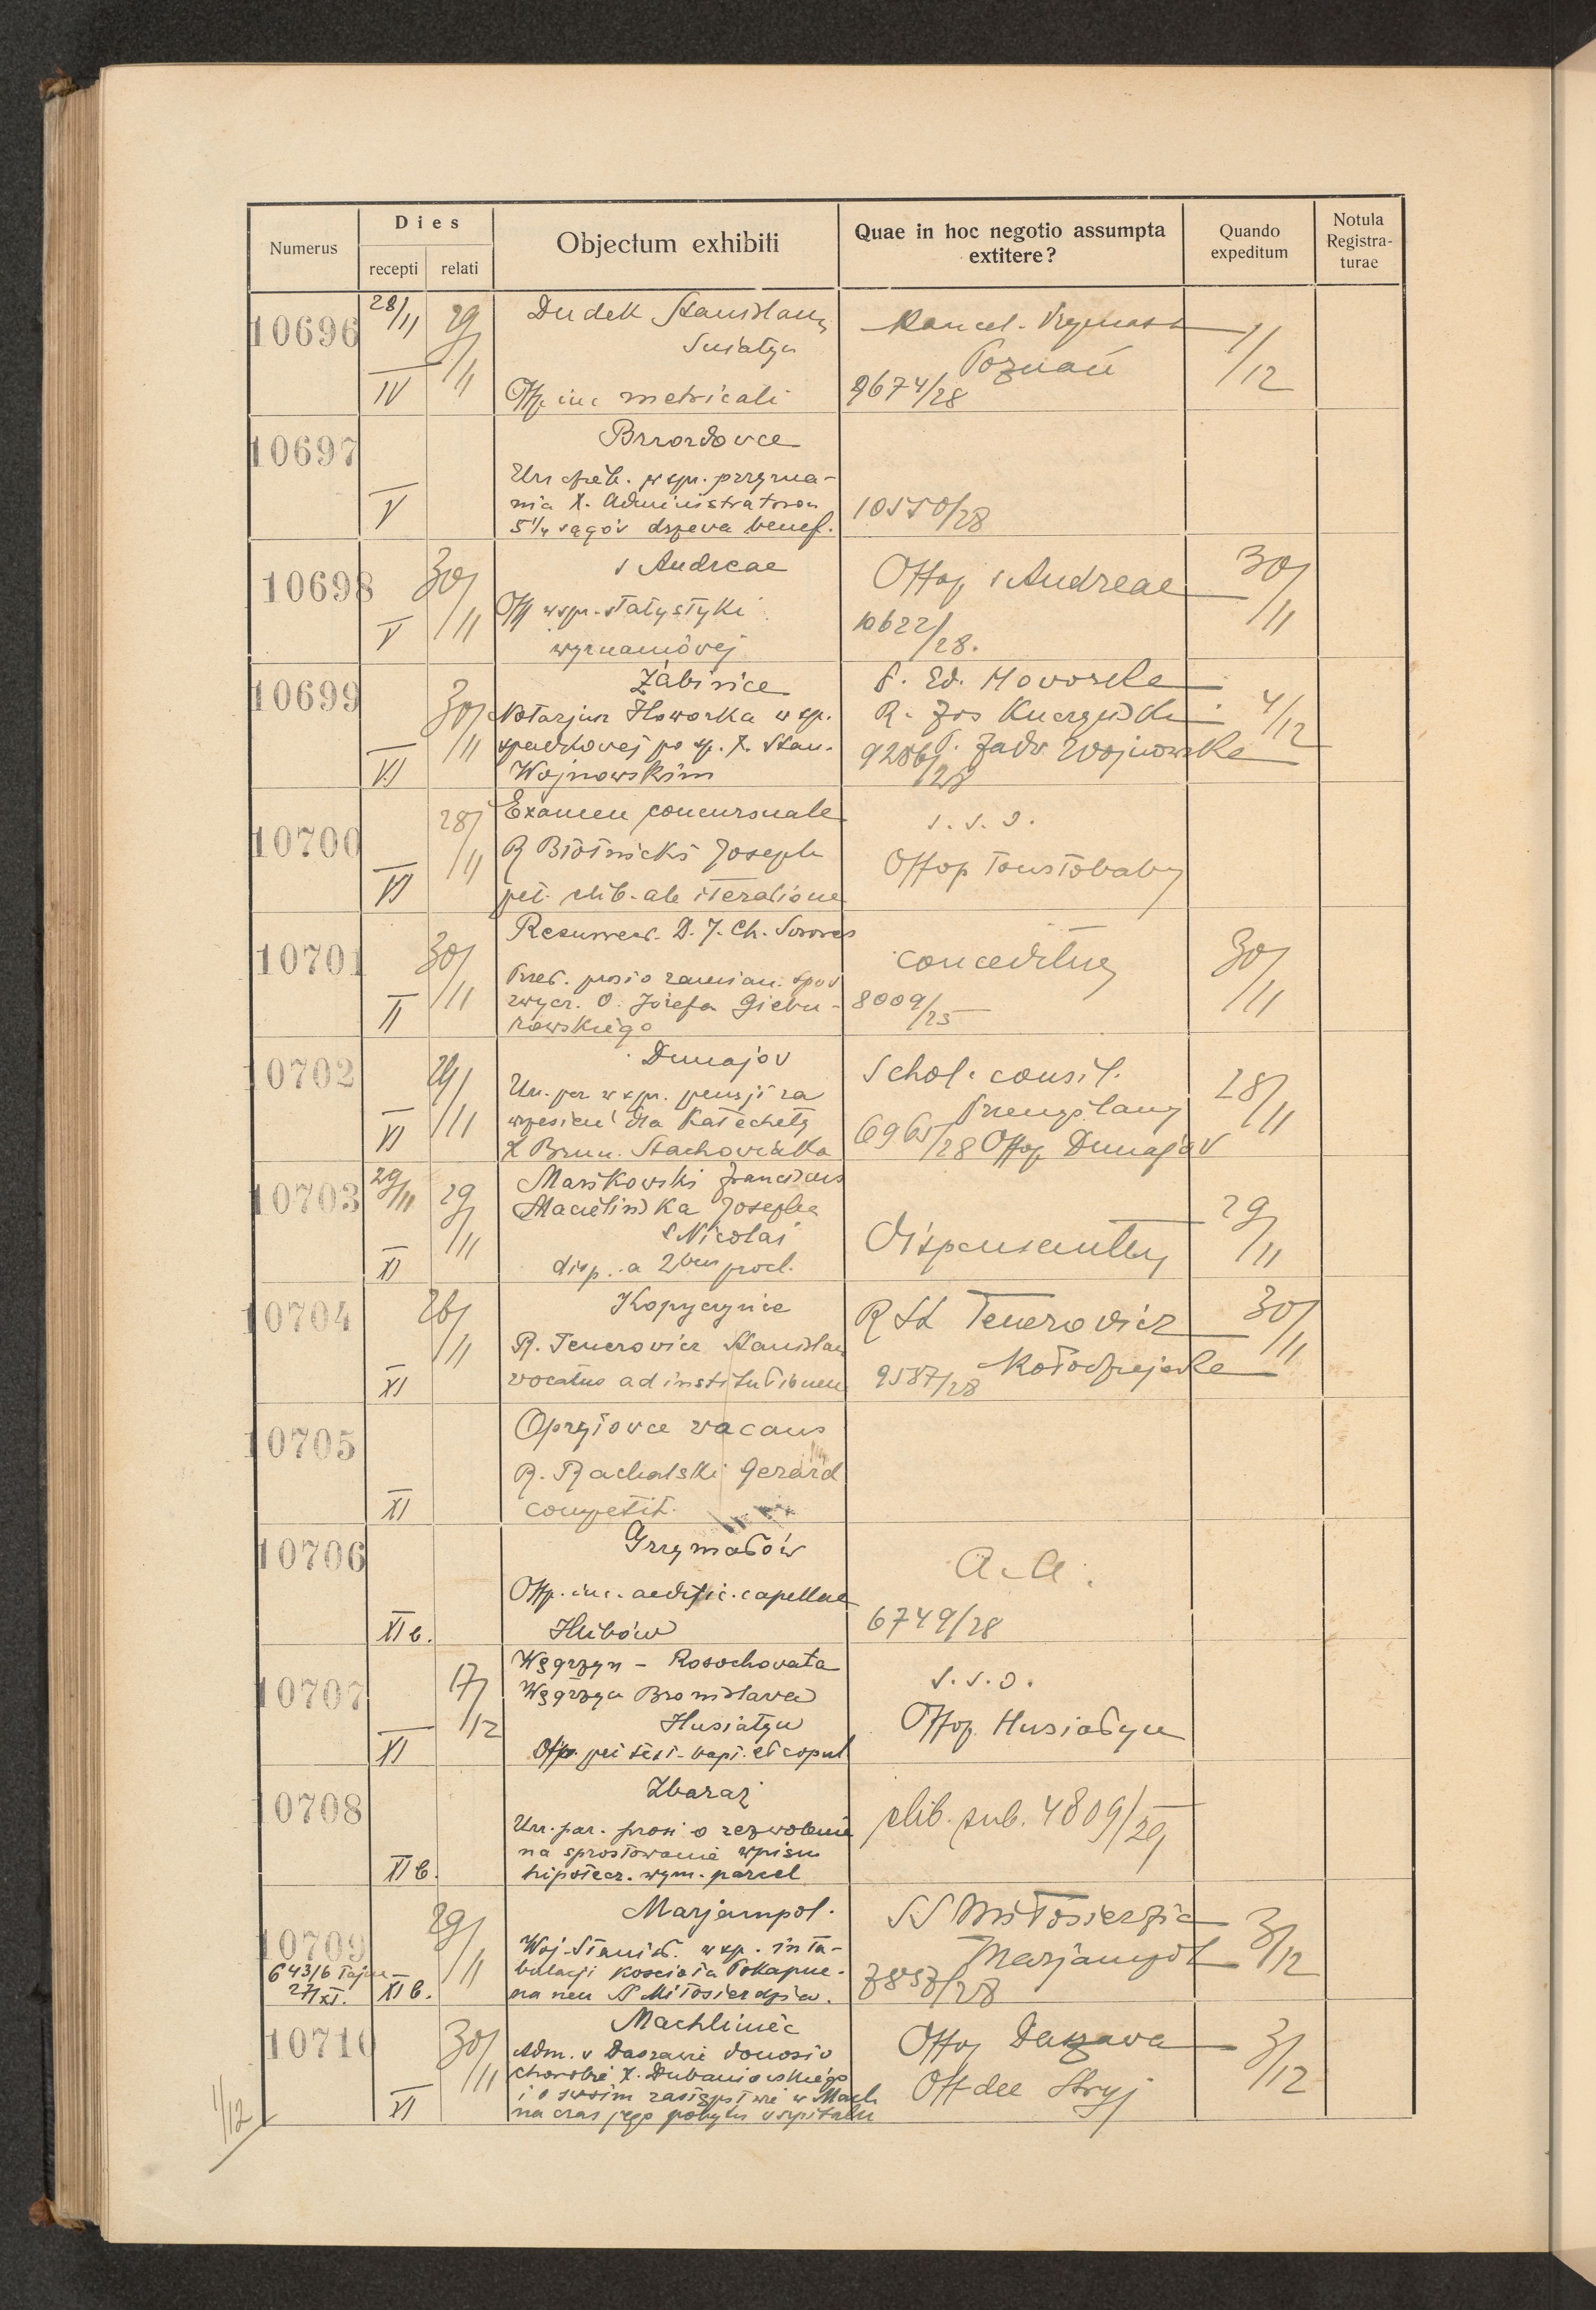 Numerus
Dies
recepti relati
Objectum exhibiti
Quae in hoc negotio assumpta
extitere?
Quando
expeditum
Notula
Registra-
turae
10696
28/11
IV
29/11
Dudek Stanislaus
Sniatyn
Offp. inc metricali
Kancel. Prymasa
Poznań
9674/28
1/12
10697
V
w spr. przyzna-
nia X. Administratorowi
5 1/4 sągów drzewa benef.
10550/28
10698
V
30/11
s Andreae
Off w spr. statystyki
wyznaniowej
Offop s Andreae
10622/28.
30/11
10699
VI
30/11
Żabińce
Notarjusz Howorka w sp.
spadkowej po sp. X. Stan.
Wojnowskim
P. Ed. Howorka
R. Jos
9286/28
P. Jadw Wojnowska
4/12
10700
VI
28/11
Examen concursuale
R Błotnicki Joseph
pet. elib. ab iteratione
s. s. o.
Offop Toustobaby
10701
II
30/11
Resurrect. D. J. Ch. Sorores
Przeł. prosi o zamian. spow
zwycz. O. Józefa Giebu-
rowskiego
conceditur
8009/25
30/11
10702
VI
28/11
Dunajov
Urz. par w spr. pensji za
wrzesień dla Katechety
X Brun. Stachowiaka
Schol. consil.
Przemyślany
6965/28 Offop Dunajov
28/11
10703
29/11
XI
29/11
Mańkowski Franciscus
Josepha
S Nicolai
disp. a 2bus procl.
Dispensantur
29/11
10704
XI
26/11
Kopyczyńce
R. Tenerowicz Stanislaus
vocatus ad institutionem
R St Tenerowicz
9587/28
Kołodziejówka
30/11
10705
XI
Opryłowce vacans
R. Rachalski Gerard
competit.
10706
XI b.
Grzymałów
Offp. inc. aedific. capellae
Hlibów
a. a.
6749/28
10707
XI
17/12
Węgrzyn - Rosochowata
Węgrzyn Bronislava
Husiatyn
Offp. pet test. bapt. et copul
s. s. o.
Offop. Husiatyn
10708
XI b.
Zbaraż
Urz. par. prosi o zezwolenie
na sprostowanie wpisu
hipotecz. wym. parcel
elib. sub. 4809/29
10709
6431/6 Tajne
27/XI.
XI b.
29/11
Marjampol.
Woj. Stanisł. w sp. inta-
bulacji kościoła Pokapuc.
na rzecz SS Miłosierdzia.
SS Miłosierdzia
Marjampol
7857/28
3/12
10710
XI
30/11
Machliniec
Adm. v Daszawie donosi o
chorobie X. Dubaniowskiego
i o swoim zastępstwie w Mach
na czas jego pobytu v szpitalu
Offop Daszawa
Off dec Stryj
3/12
1/12